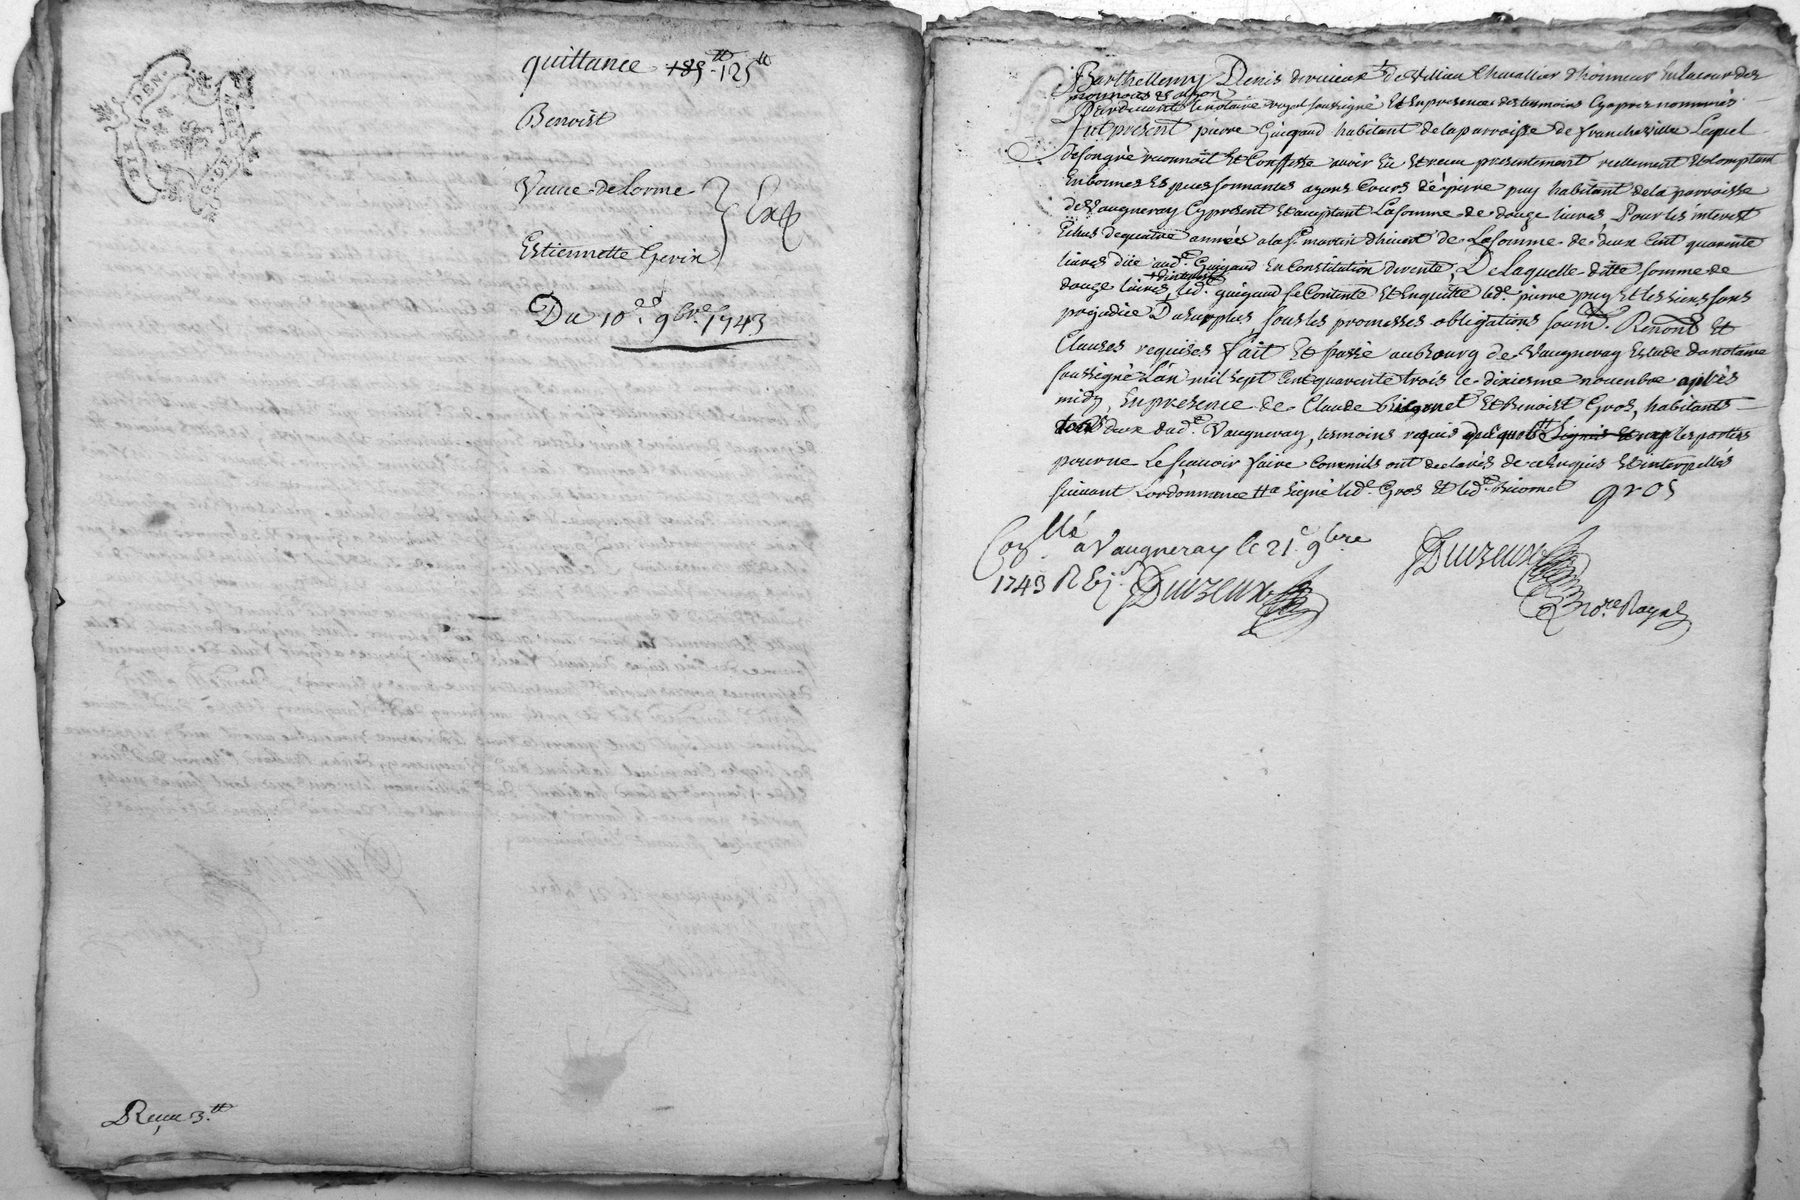 quittance 185tt 125tt
Benoist
Veuue delorme
Estiennette Gerin
Du 10e. 9bre. 1743
Reçeu 3.tt
Barthellemy Denis de Villieu Chevallier d'honneur En la cour des
monnoies de Lyon
Pardeuant le notaire royal soussigné Et En presence des temoins Cy apres nommés
fut present pierre Guigaud habitant de la parroisse de francheville Lequel
de son gré reconnoit Et Confesse auoir Eü Et receu presentement reellement Et Comptant
En bonnes Especes sonnantes ayans Cours de pierre puy habitant de la parroisse
de Vaugneray Cy present Et acceptant La somme de douze liures Pour les interest
Echus de quatre années a la St. martin d'hiuert de La somme de deux Cent quarente
liures düe aud. Guigaud En Constitution de rente, De laquelle ditte somme de
douze liures, led. guigaud se Contente Et En quitte led. pierre puy Et les siens sans
préjudice Du surplus, sous les promesses obligations soum. Renons Et
Clauses requises fait Et passé au Bourg de Vaugneray Estude du notaire
soussigné L'an mil sept Cent quarente trois le dixiesme nouembre aprés
midy, En presence de Claude Et Benoist Gros, habitants
tous deux dud. Vaugneray, temoins requis signés Et non les parties
pour ne Le sçauoir faire Comm'ils ont declarés de ce Enquis Et interpellés
suiuant L'ordonnance tt a signé led. Gros Et led.
gros
Collé a Vaugneray le 21e 9bre
1743 R
Duizeux
Duizeux
nore. Royal